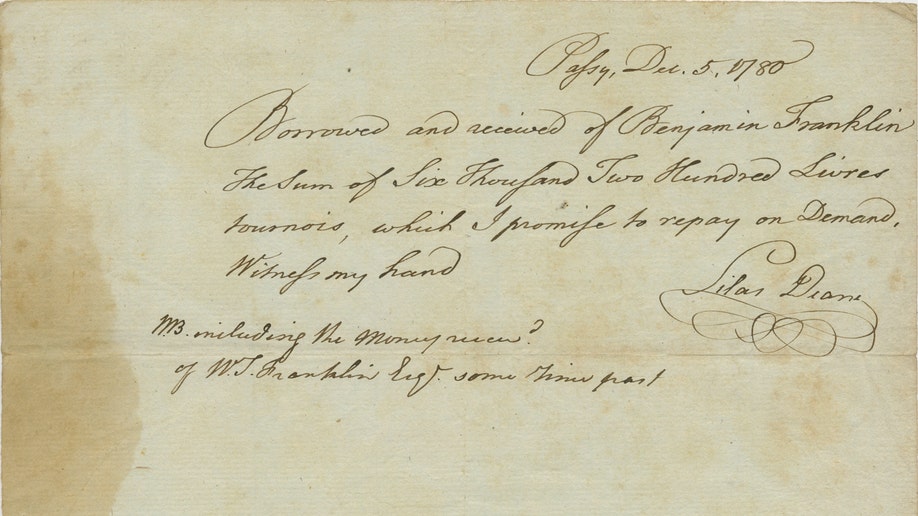 Passy, Dec. 5, 1780
Borrowed and received of Benjamin Franklin
the Sum of Six Thousand Two Hundred Livres
tournois, which I promise to repay on Demand.
Witness my hand
Silas Deane
NB. including the Money receivd
of W. T. Franklin Esqr. some time past